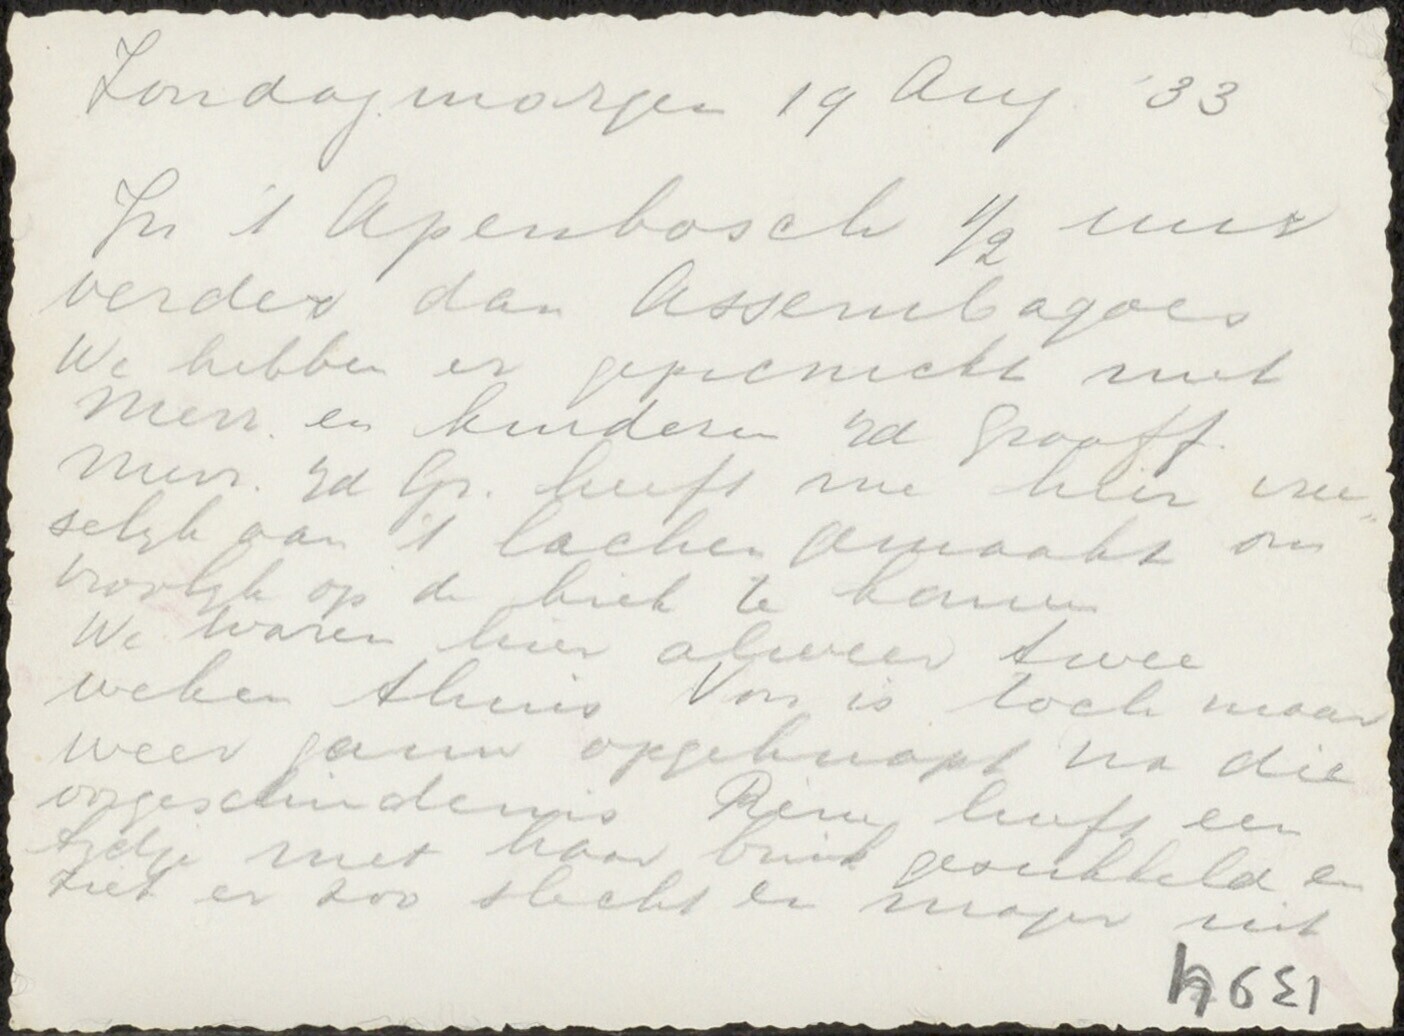 Zondagmorgen 19 Aug '33
In 't Apenbosch 1/2 uur
verder dan Assembagoes
We hebben er gepicnickt met
Mevr. en kinderen v d Graaff.
Mevr. v d Gr. heeft me hier vree„
selijk aan 't lachen gemaakt om
vroolijk op de kiek te komen
We waren hier alweer twee
weken thuis Von is toch maar
weer gauw opgeknapt na die
oorgeschiedenis Rieny heeft een
tijdje met haar buik gesukkeld en
ziet er zoo slecht en mager uit